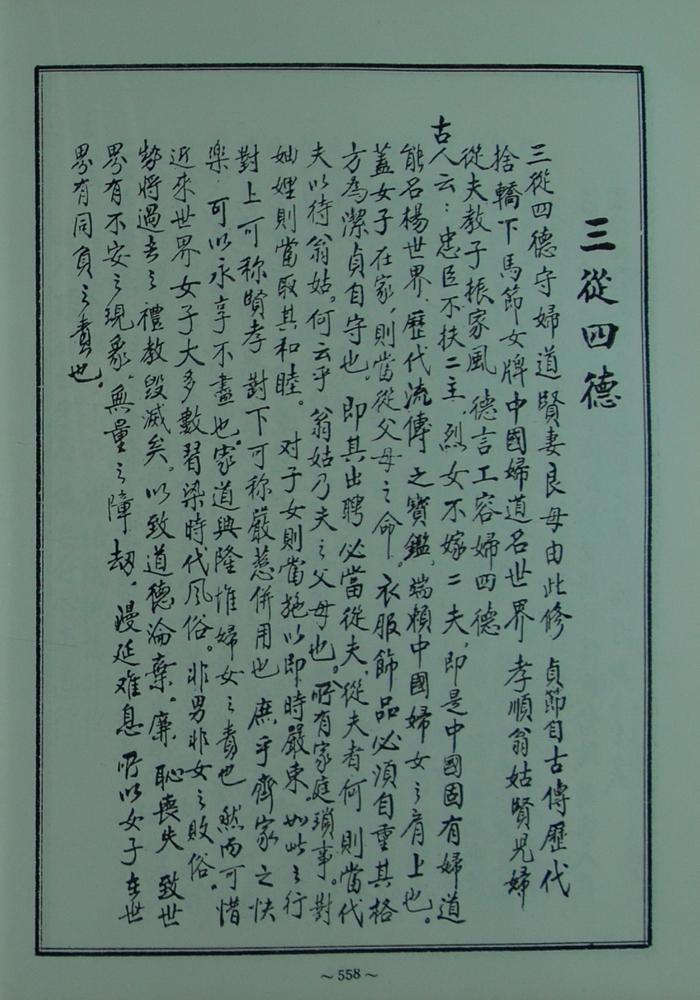 三從四德
三從四德守婦道賢妻良母由此修 貞節自古傳歷代
捨轎下馬節女牌中國婦道名世界 孝順翁姑賢兒婦
從夫教子振家風 德言工容婦四德
古人云：忠臣不扶二主、烈女不嫁二夫，即是中國固有婦道
能名楊世界、歷代流傳之寶鑑、端賴中國婦女之肩上也。
蓋女子在家，則當從父母之命。衣服飾品必須自重其格
方為潔貞自守也。即其出聘必當從夫、從夫者何則當代
夫以待翁姑。何云乎翁姑乃夫之父母也。所有家庭瑣事。對
妯娌則當取其和睦。对子女則當施以即時嚴束。如此之行
對上可称賢孝 對下可称嚴慈併用也 庶乎齊家之快
樂 可以永享不盡也。家道興隆惟婦女之責也 然而可惜
近來世界女子大多數習染時代风俗。非男非女之敗俗。
勢將過去之禮教毀滅矣。以致道德淪棄。廉恥喪失 致世
界有不安之現象。無量之障劫。漫延难息 所以女子在世
界有同負之責也。
～558～